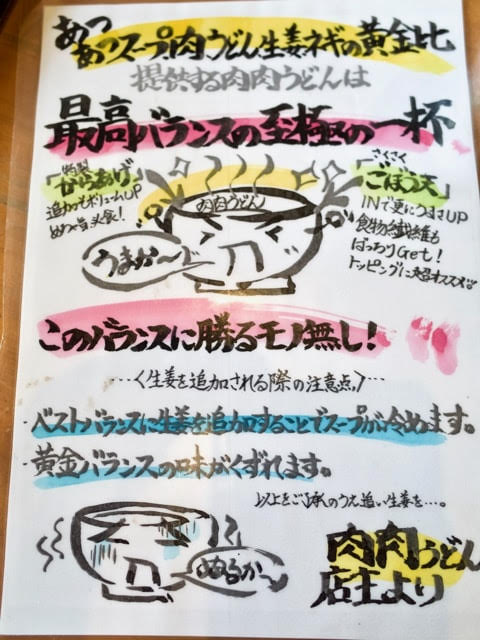 あつあつスープ肉うどん生姜ネギの黄金比
提供する肉肉うどんは
最高バランスの至極の一杯
「特製からあげ」
追加でボリュームUP
めっちゃ美食!
肉肉うどん
うまか〜
「さくさくごぼう天」
INで更にうまさUP
食物繊維も
ばっちりGet!
トッピングに超オススメ!!
このバランスに勝るモノ無し!
…〈生姜を追加される際の注意点。〉…
・ベストバランスに生姜を追加することでスープが冷めます。
・黄金バランスの味がくずれます。
以上をご了承のうえ追い生姜を…。
ぬるか〜
肉肉うどん
店主より